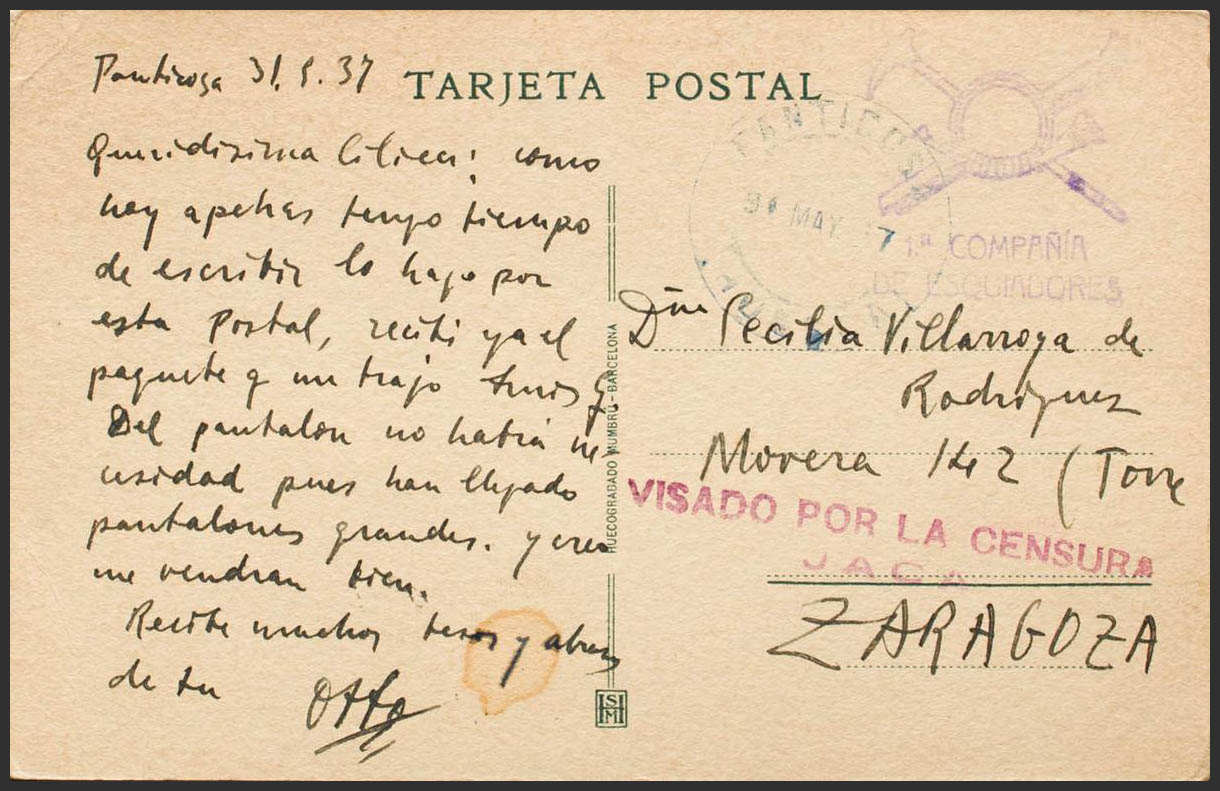 Panticosa 31.5.37
TARJETA POSTAL
Queridisima Cilica: como
hoy apenas tengo tiempo
de escribir lo hago por
esta Postal, recibi ya el
paquete q me trajo Luis G.
Del pantalon no habrá ne
cesidad pues han llegado
pantalones grandes. y creo
me vendran bien.
Recibe muchos besos y abrazos
de tu Otto
HUECOGRABADO MUMBRÚ - BARCELONA
PANTICOSA
31 MAY. 37
1.ª COMPAÑÍA
DE ESQUIADORES
Dña Cecilia Villarroya de
Rodriguez
Movera 142 (Torre
VISADO POR LA CENSURA
JACA
ZARAGOZA